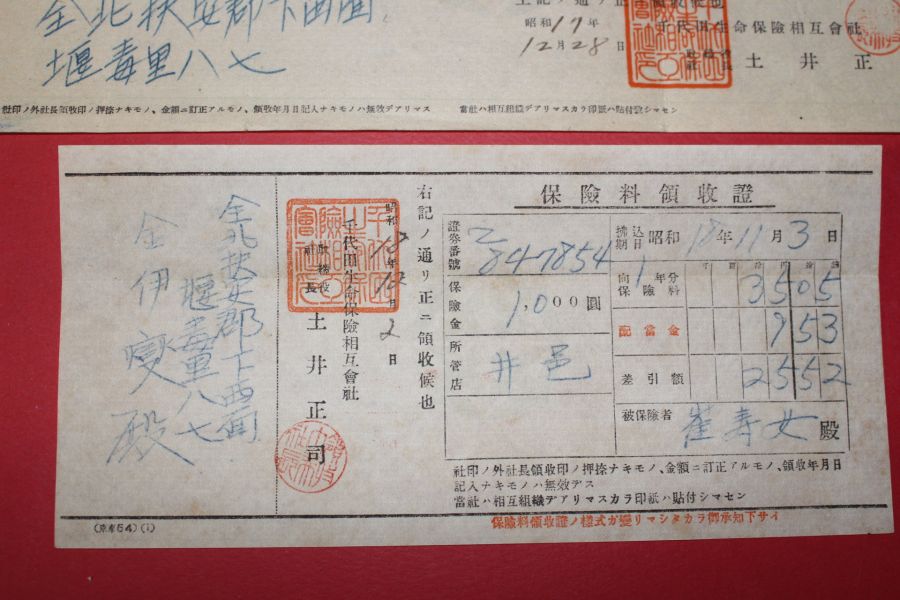 全北扶安郡下西面
堰毒里八七
昭和17年
12月28日
千代田生命保險相互會社
土井正
社印ノ外社長領收印ノ押捺ナキモノ、金額ニ訂正アルモノ、領收年月日記入ナキモノハ無效デアリマス
當社ハ相互組織デアリマスカラ印紙ハ貼付致シマセン
保險料領收證
證券番號 2/847854
保險金 1,000圓
所管店 井邑
拂込期日 昭和18年11月3日
向1年分保險料 3505
配當金 953
差引額 2552
被保險者 崔壽女殿
社印ノ外社長領收印ノ押捺ナキモノ、金額ニ訂正アルモノ、領收年月日
記入ナキモノハ無效デス
當社ハ相互組織デアリマスカラ印紙ハ貼付シマセン
保險料領收證ノ樣式ガ變リマシタカラ御承知下サイ
右記ノ通リ正ニ領收候也
昭和18年12月2日
千代田生命保險相互會社
取締役社長 土井正司
全北扶安郡下西面
堰毒里八七
金伊變殿